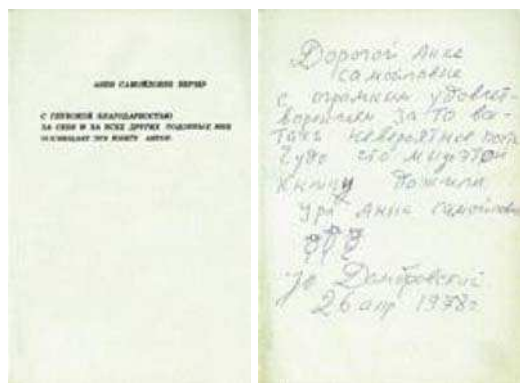 АННЕ САМОЙЛОВНЕ БЕРЗЕР
С ГЛУБОКОЙ БЛАГОДАРНОСТЬЮ
ЗА СЕБЯ И ЗА ВСЕХ ДРУГИХ ПОДОБНЫХ МНЕ
ПОСВЯЩАЕТ ЭТУ КНИГУ АВТОР.
Дорогой Анне
Самойловне
с огромным удовлет-
ворением за то
такое невероятное
чудо что мы до этой
книги дожили
ура Анна Самойловна
Ю Домбровский
26 апр 1978г